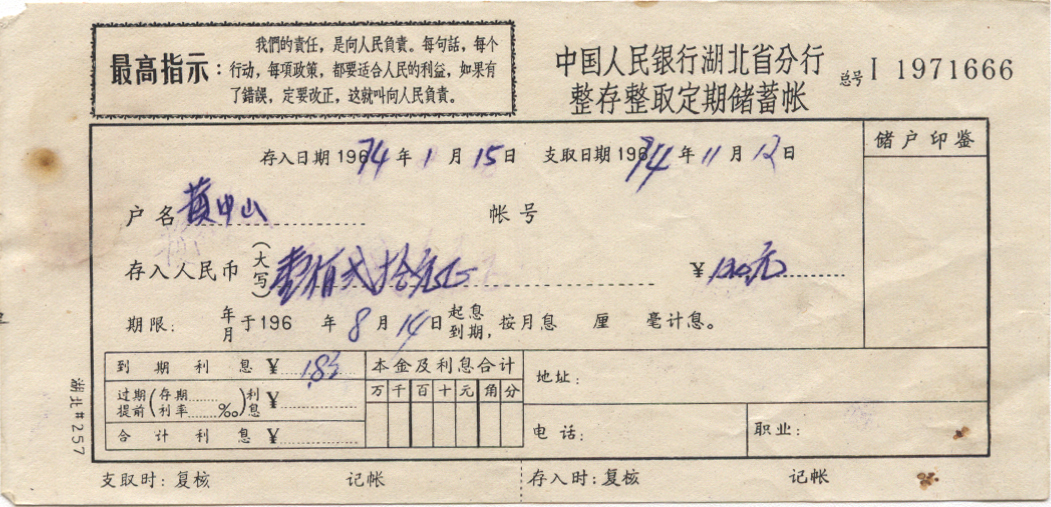 最高指示：
我們的責任，是向人民負責。每句話，每个
行动，每項政策，都要适合人民的利益，如果有
了錯誤，定要改正，这就叫向人民負責。
中国人民银行湖北省分行
整存整取定期储蓄帐
总号 I 1971666
存入日期 196 74 年 1 月 15 日 支取日期 196 74 年 11 月 12 日
储户印鉴
户名 黄中山 帐号
存入人民币（大写）壹佰贰拾元正 ¥ 120元
期限： 年月 于196 年 8 月 14 日 起息到期，按月息 厘 毫计息。
到期利息 ¥ 1.85
本金及利息合计
过期提前（存期 利率 ‰）利息 ¥
万 千 百 十 元 角 分
合计利息 ¥
地址：
电话： 职业：
湖北#257
支取时：复核 记帐 存入时：复核 记帐